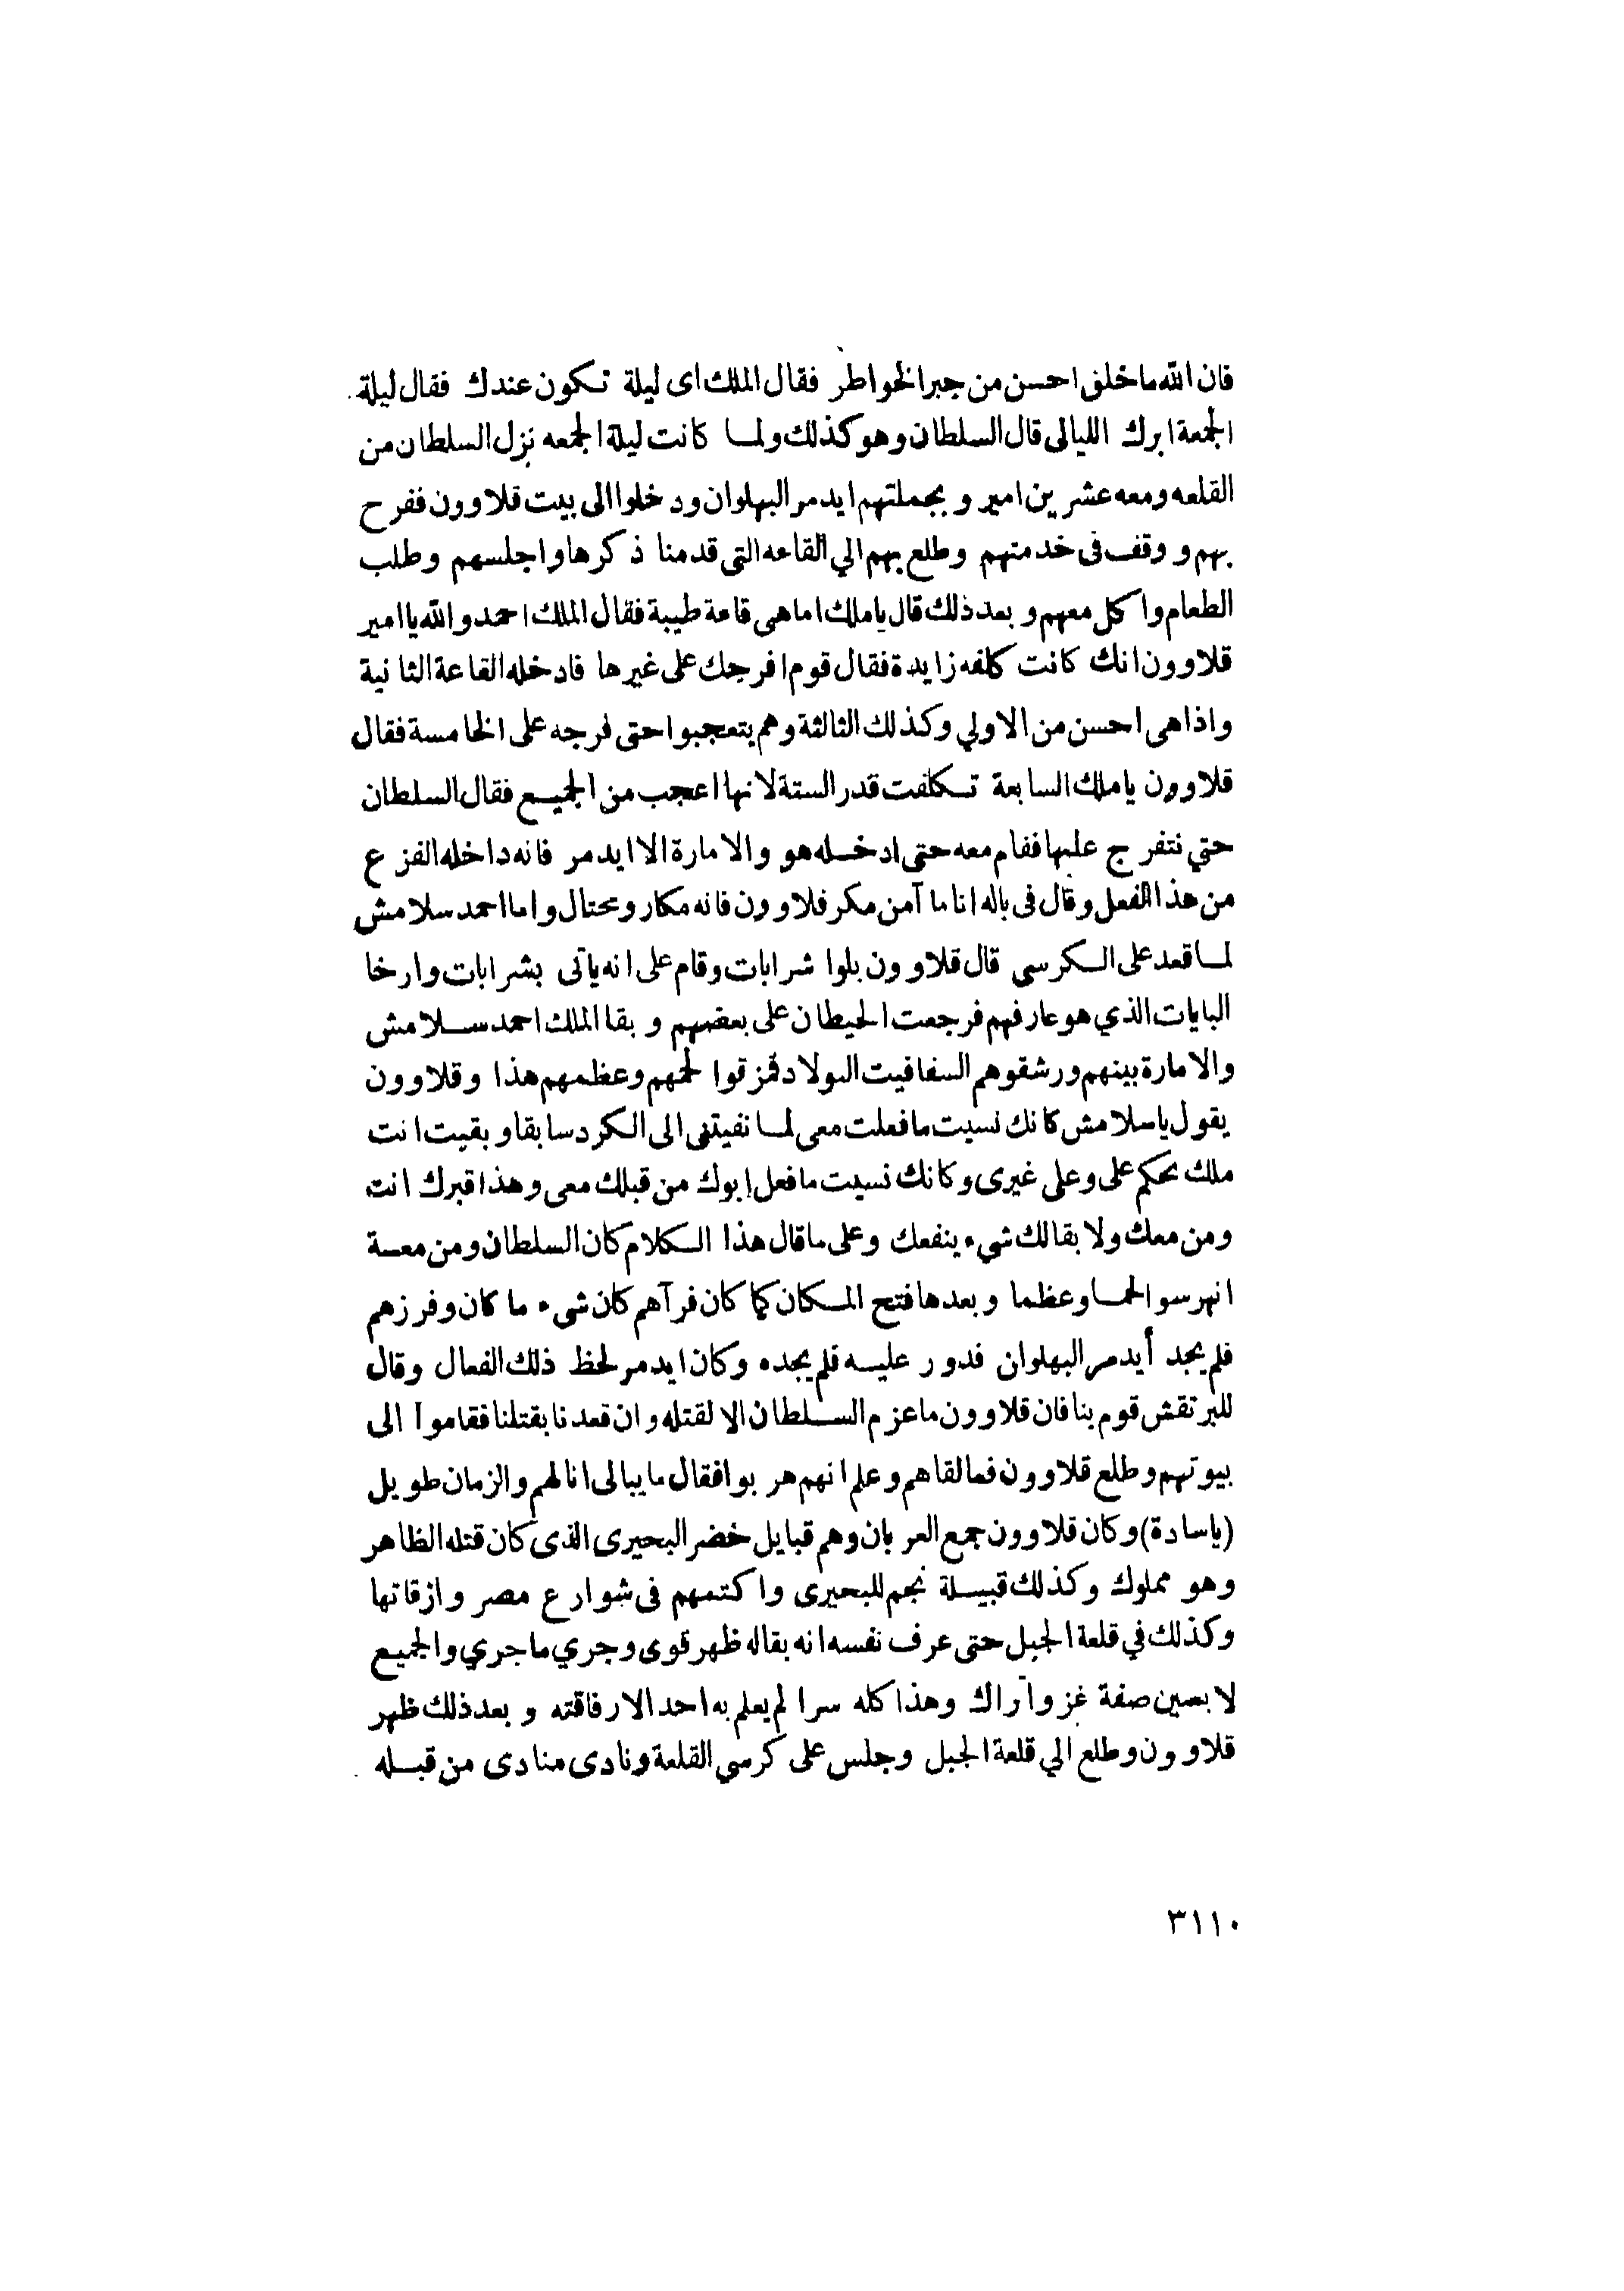 فان الله ماخلق احسن من جبر الخواطر فقال الملك اى ليلة تكون عندك فقال ليلة
الجمعة ابرك الليالى قال السلطان وهو كذلك ولما كانت ليلة الجمعه نزل السلطان من
القلعه ومعه عشرين امير وبجملتهم ايدمر البهلوان ودخلوا الى بيت قلاوون ففرح
بهم ووقف فى خدمتهم وطلع بهم الي القاعه التى قدمنا ذكرها واجلسهم وطلب
الطعام واكل معهم وبعد ذلك قال ياملك اما هى قاعة طيبة فقال الملك احمد والله يا امير
قلاوون انك كانت كلفه زايدة فقال قوم افرجك على غيرها فادخله القاعة الثانية
واذا هى احسن من الاولي وكذلك الثالثة وهم يتعجبوا حتى فرجه على الخامسة فقال
قلاوون ياملك السابعة تكلفت قدر الستة لانها اعجب من الجميع فقال السلطان
حتي نتفرج عليها فقام معه حتى ادخله هو والامارة الا ايدمر فانه داخله الفزع
من هذا الفعل وقال فى باله انا ما آمن مكر قلاوون فانه مكار ومحتال واما احمد سلامش
لما قعد على الكرسي قال قلاوون بلوا شرابات وقام على انه يأتى بشرابات وارخا
البايات الذي هو عارفهم فرجعت الحيطان على بعضهم وبقا الملك احمد سلامش
والامارة بينهم ورشقوهم السفافيت البولاد فمزقوا لحمهم وعظمهم هذا وقلاوون
يقول ياسلامش كانك نسيت مافعلت معى لما نفيتنى الى الكرد سابقا وبقيت انت
ملك تحكم على وعلى غيرى وكانك نسيت مافعل ابوك من قبلك معى وهذا قبرك انت
ومن معك ولا بقالك شيء ينفعك وعلى ماقال هذا الكلام كان السلطان ومن معة
انهرسوا لحما وعظما وبعدها فتح المكان كما كان فرآهم كان شىء ما كان وفرزهم
فلم يجد أيدمر البهلوان فدور عليه فلم يجده وكان ايدمر لحظ ذلك الفعال وقال
للبرتقش قوم بنا فان قلاوون ماعزم السلطان الا لقتله وان قعدنا بقتلنا فقاموا الى
بيوتهم وطلع قلاوون فمالقاهم وعلم انهم هربوا فقال ما يبالى انا لهم والزمان طويل
(ياسادة) وكان قلاوون جمع العربان وهم قبايل خضر البحيرى الذى كان قتله الظاهر
وهو مملوك وكذلك قبيلة نجم للبحيرى واكتمهم فى شوارع مصر وازقاتها
وكذلك في قلعة الجبل حتى عرف نفسه انه بقاله ظهر قوى وجري ماجري والجميع
لابسين صفة غز وآراك وهذا كله سرا لم يعلم به احد الا رفاقته وبعد ذلك ظهر
قلاوون وطلع الي قلعة الجبل وجلس على كرسي القلعة ونادى منادى من قبله
٣١١٠